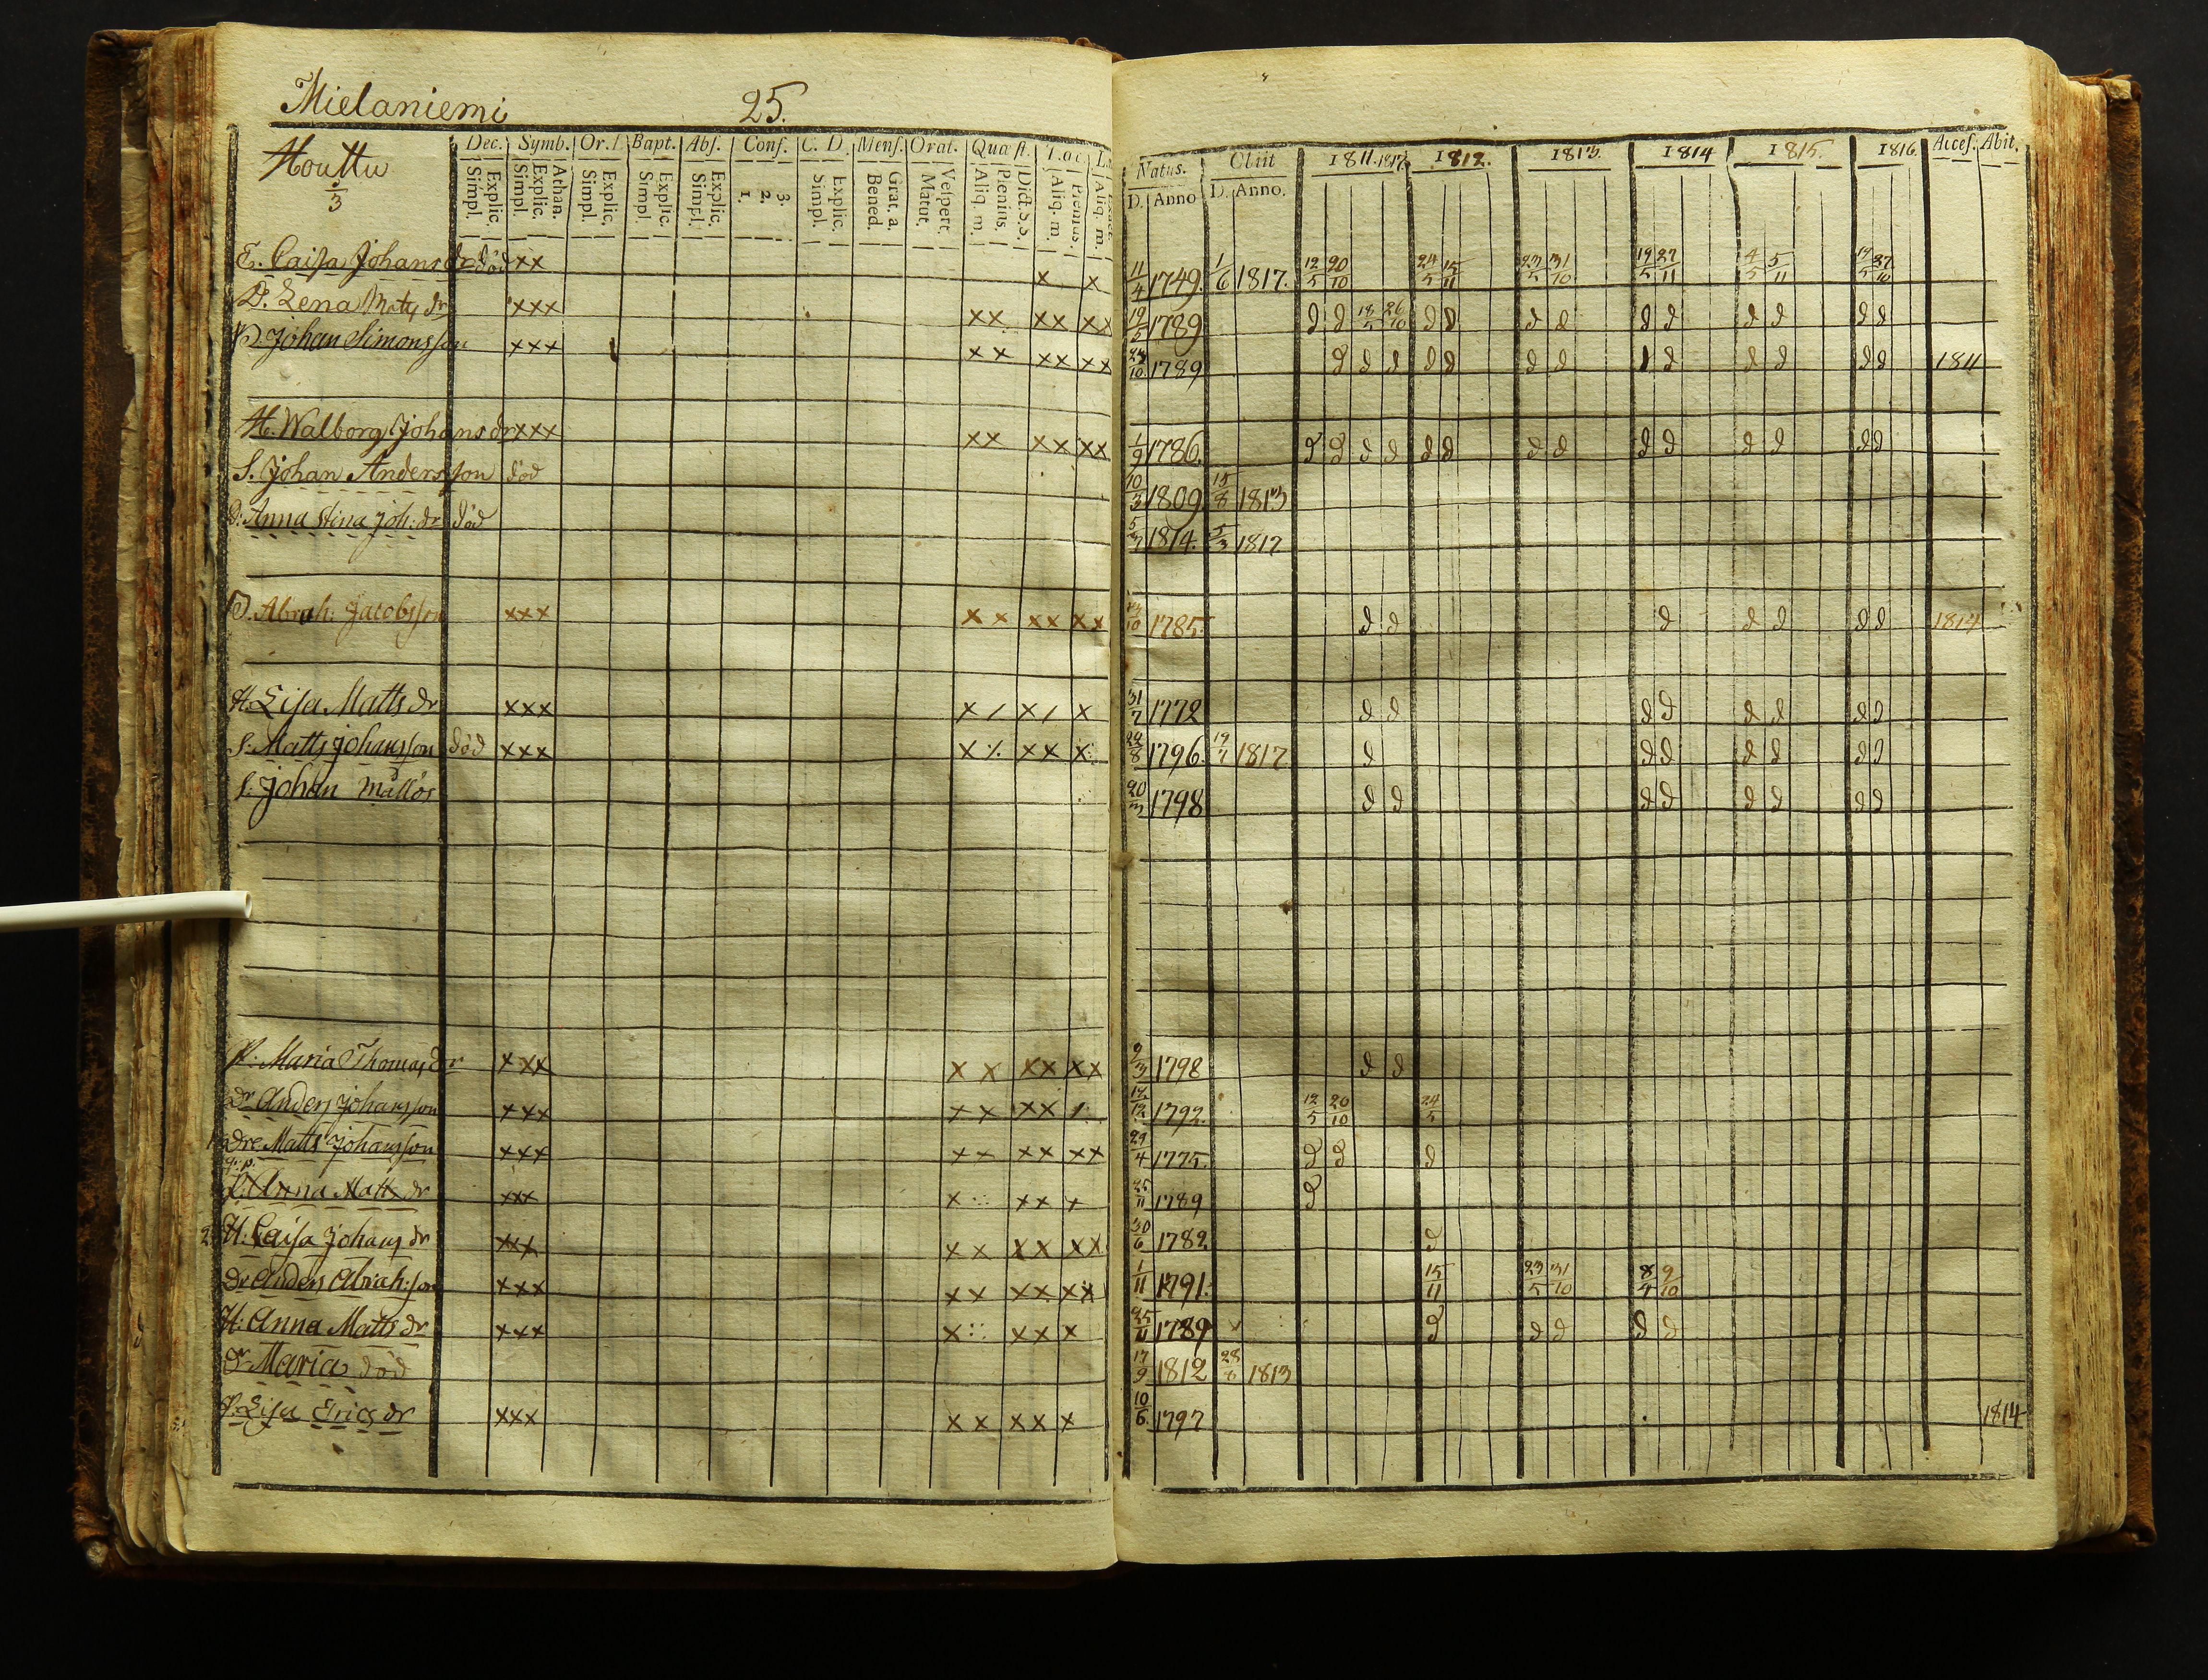 Mielaniemi 25.
Houttu
2/3
Dec. Symb. Or. D. Bapt. Abs. Conf. C. D. Mens. Orat. Quæst. Loc.
Explic. Simpl. Athan. Explic. Simpl. Explic. Simpl. Explic. Simpl. Explic. Simpl. 3. 2. 1. Explic. Simpl. Grat. a. Bened. Vespert. Matut. Plenius. Aliq. m. Dict. S. S. Plenius. Aliq. m. Aliq. m.
Natus. Obiit 1811. 1817. 1812. 1813. 1814 1815. 1816. Acces. Abit.
D. Anno D. Anno.
E. Caisa Johans dr död xx x x 11/4 1749. 1/6 1817. 12/5 20/10 24/5 15/11 23/5 31/10 19/5 27/11 4/5 5/11 19/5 27/10
D. Lena Matts dr xxx xx xx xx 19/2 1789 d d 18/5 26/10 d d d d d d d d d d
Johan Simonsson xxx xx xx xx 1789 d d d d d d d d d d d d d 1811
H. Walborg Johans dr xxx xx xx xx 1/9 1786. d d d d d d d d d d d d d d
S. Johan Andersson död 10/3 1809 15/8 1813
D: Anna Stina Joh: dr död 1814. 5/3 1817
Abrah: Jacobsson xxx xx xx xx 1785. d d d d d d d 1814
H. Lisa Matts dr xxx x / x / x 31/7 1772 d d d d d d d d
S: Matts Johansson död xxx x ⁒ xx x 1796. 19/7 1817 d d d d d d d
S: Johan mållös 20/3 1798 d d d d d d d d
P: Maria Thomas dr xxx xx xx xx 1798 d d
Dr Anders Johansson xxx xx xx 1792. 12/5 20/10 24/5
Dre Matts Johansson xxx xx xx xx 29/4 1775. d d d
Anna Matts dr xxx x xx x 25/11 1789 d
2 H: Caisa Johans dr xxx xx xx xx 30/6 1782 d
Dr Anders Abrah:son xxx xx xx xx 1/11 1791. 15/11 23/5 31/10 8/4 9/10
H: Anna Matts dr xxx x xx x 25/11 1789 d d d d d
Dr Maria död 17/9 1812 28/8 1813
P. Lisa Erics dr xxx xx xx x 10/6 1797 1814